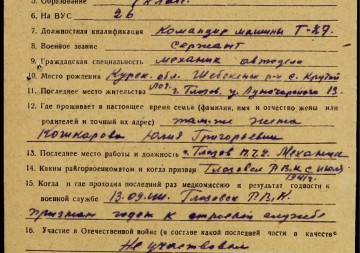 5. Образование 7 клас.
6. На ВУС 26
7. Должностная квалификация Командир машины Т-27.
8. Военное звание сержант
9. Гражданская специальность механик автодело
10. Место рождения Курск. обл. Шебекенский р-н с. Крутой
11. Последнее место жительства г. Глазов. у. Луначарского 13.
12. Где проживает в настоящее время семья (фамилия, имя и отчество жены или
родителей и точный их адрес) там-же жена
Кошкарова Юлия Григорьевич
13. Последнее место работы и должность г. Глазов Механик
14. Каким райгорвоенкоматом и когда призван Глазовск Р.В.К. с июля
1941 г.
15. Когда и где проходил последний раз медкомиссию и результат годности к
военной службе 13.09. Глазовск Р.В.К.
признан годен к строевой службе
16. Участие в Отечественной войне (в составе какой последней части в качестве
Не участвовал